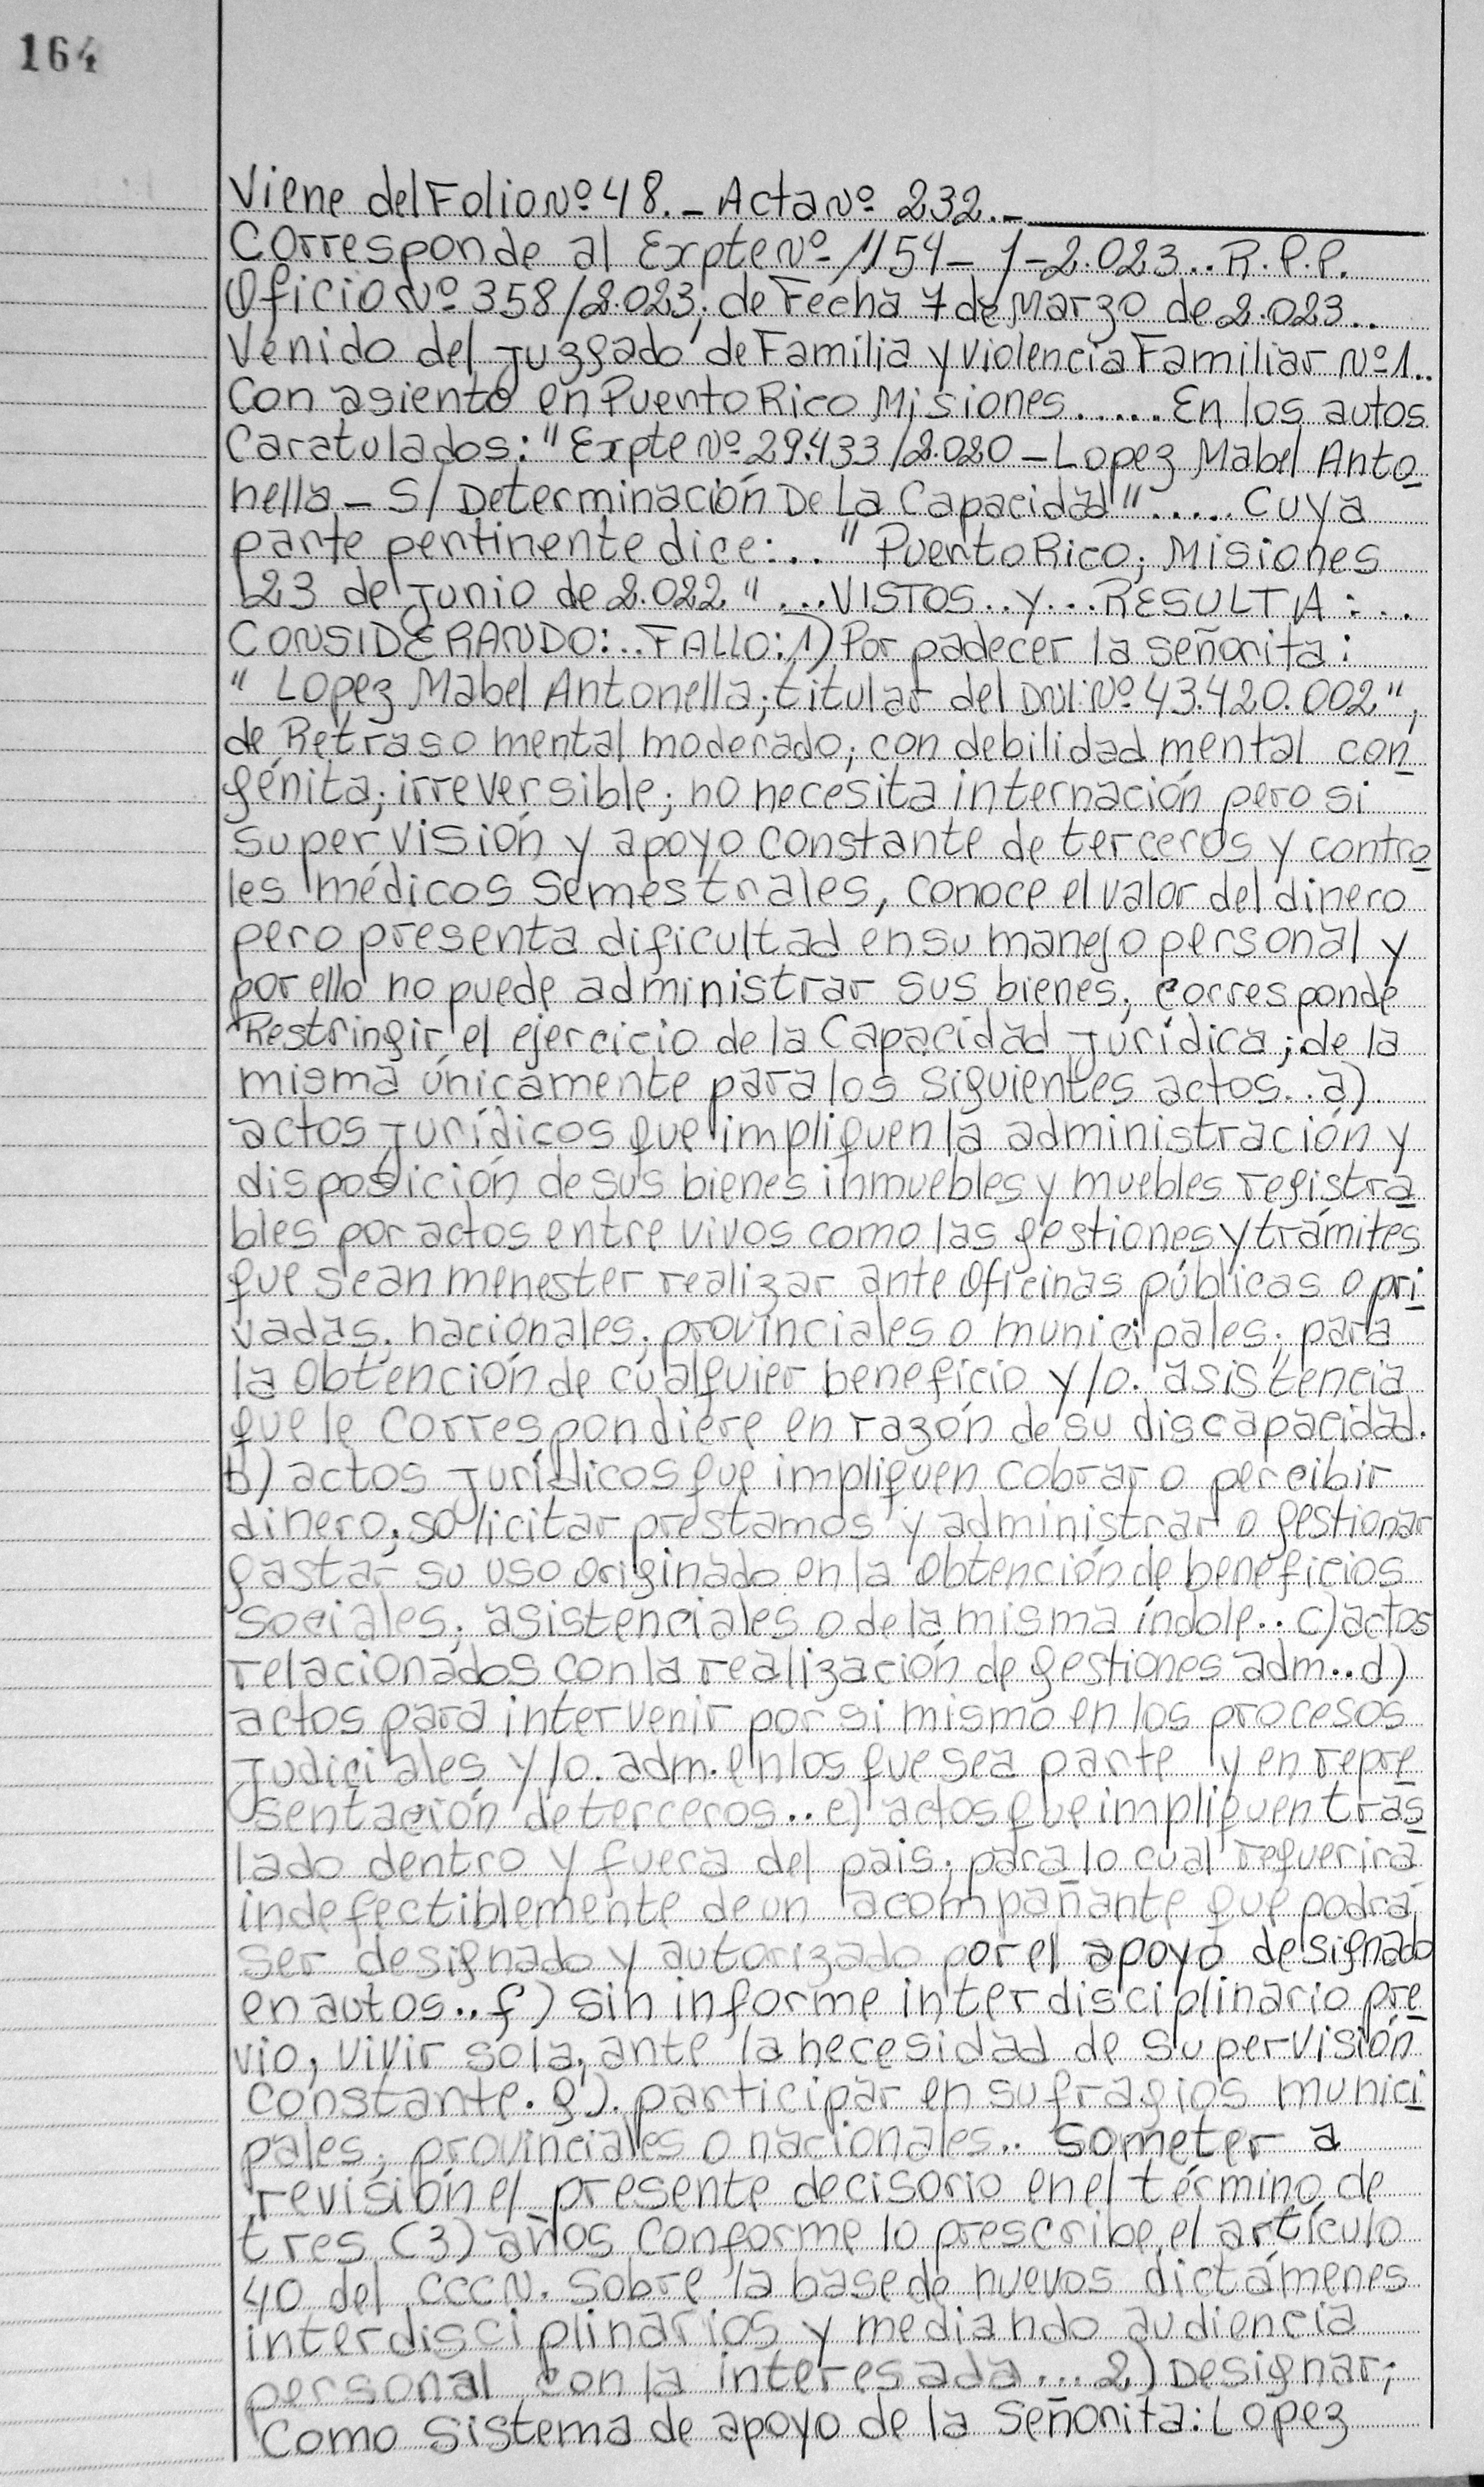 164
Viene del Folio Nº 48.- Acta Nº 232.-
Corresponde al Expte Nº 1154- 1-2.023.. R.P.P.
Oficio Nº 358/2.023; de Fecha 7 de Marzo de 2.023..
Venido del Juzgado de Familia y Violencia Familiar Nº 1..
Con asiento en Puerto Rico Misiones...... En los autos
Caratulados: "Expte Nº 29.433/2.020 - Lopez Mabel Anto
nella - S/ Determinación De La Capacidad"..... Cuya
parte pertinente dice:.. "Puerto Rico; Misiones
23 de Junio de 2.022" ...VISTOS..Y...RESULTA:...
CONSIDERANDO:..FALLO: 1) Por padecer la señorita:
"Lopez Mabel Antonella; titular del DNI: Nº 43.420.002",
de Retraso mental moderado; con debilidad mental con
génita; irreversible; no necesita internación pero si
supervisión y apoyo constante de terceros y contro
les médicos semestrales, conoce el valor del dinero
pero presenta dificultad en su manejo personal y
por ello no puede administrar sus bienes; corresponde
Restringir el ejercicio de la Capacidad Jurídica; de la
misma únicamente para los siguientes actos.. a)
actos jurídicos que impliquen la administración y
disposición de sus bienes inmuebles y muebles registra
bles por actos entre vivos como las gestiones y trámites
que sean menester realizar ante oficinas públicas o pri
vadas. nacionales; provinciales o municipales; para
la obtención de cualquier beneficio y/o. asistencia
que le correspondiere en razón de su discapacidad.
b) actos jurídicos que impliquen cobrar o percibir
dinero; solicitar préstamos y administrar o gestionar
gastar su uso originado en la obtención de beneficios
sociales; asistenciales o de la misma índole.. c) actos
relacionados con la realización de gestiones adm.. d)
actos para intervenir por si mismo en los procesos
Judiciales y/o. adm. en los que sea parte y en repre
sentación de terceros.. e) actos que impliquen tras
lado dentro y fuera del pais; para lo cual requerirá
indefectiblemente de un acompañante que podrá
ser designado y autorizado por el apoyo designado
en autos.. f) sin informe interdisciplinario pre
vio, vivir sola, ante la necesidad de supervisión
constante. g). participar en sufragios munici
pales; provinciales o nacionales.. someter a
revisión el presente decisorio en el término de
tres (3) años conforme lo prescribe el artículo
40 del CCCN. sobre la base de nuevos dictámenes
interdisciplinarios y mediando audiencia
personal con la interesada... 2) Designar;
Como sistema de apoyo de la Señorita: Lopez